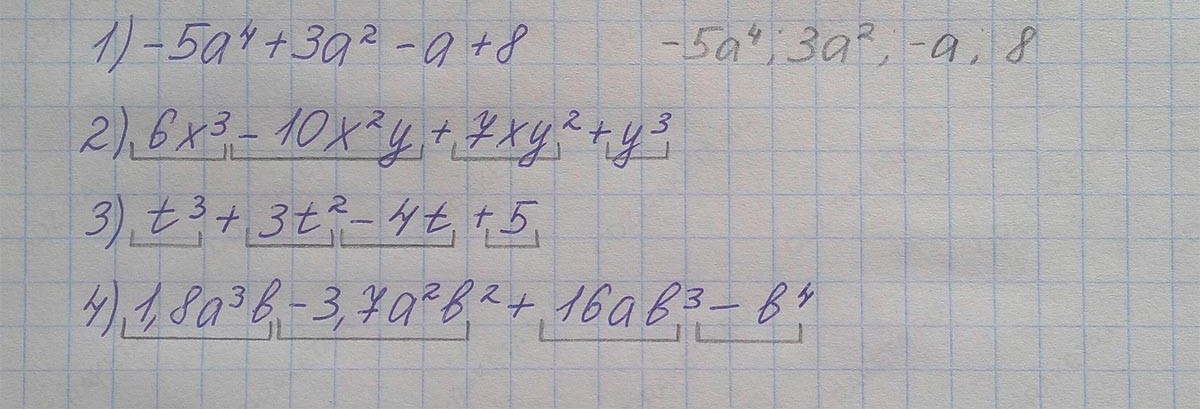 1) -5a⁴ + 3a² - a + 8 -5a⁴; 3a²; -a; 8
2) 6x³ - 10x²y + 7xy² + y³
3) t³ + 3t² - 4t + 5
4) 1,8a³b - 3,7a²b² + 16ab³ - b⁴